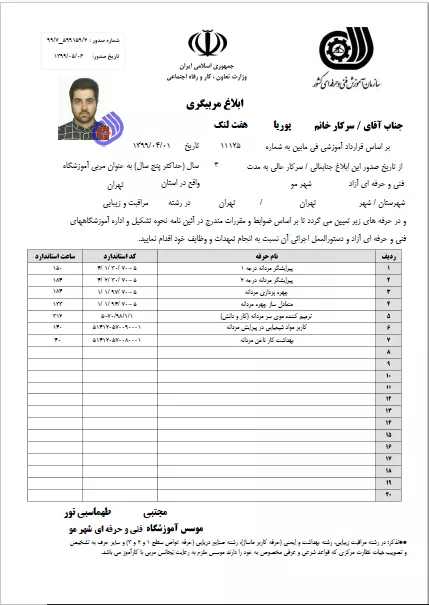 شماره صدور: ۹۹/۷_۵۹۹۱۵۹/۲
تاریخ صدور: ۱۳۹۹/۰۵/۰۶
جمهوری اسلامی ایران
وزارت تعاون ، کار و رفاه اجتماعی
سازمان آموزش فنی و حرفه ای کشور
ابلاغ مربیگری
جناب آقای / سرکار خانم پوریا هفت لنگ
بر اساس قرارداد آموزشی فی مابین به شماره ۱۱۱۲۵ تاریخ ۱۳۹۹/۰۴/۰۱
از تاریخ صدور این ابلاغ جنابعالی / سرکار عالی به مدت ۳ سال (حداکثر پنج سال) به عنوان مربی آموزشگاه
فنی و حرفه ای آزاد شهر مو واقع در استان تهران
شهرستان / شهر تهران / تهران در رشته مراقبت و زیبایی
و در حرفه های زیر تعیین می گردد تا بر اساس ضوابط و مقررات مندرج در آئین نامه نحوه تشکیل و اداره آموزشگاههای
فنی و حرفه ای آزاد و دستورالعمل اجرائی آن نسبت به انجام تعهدات و وظایف خود اقدام نمایید.
ردیف نام حرفه کد استاندارد ساعت استاندارد
۱ پیرایشگر مردانه درجه ۱ ۱۵۰
۲ پیرایشگر مردانه درجه ۲ ۱۸۴
۳ چهره پردازی مردانه ۱۸۴
۴ متعادل ساز چهره مردانه ۱۲۳
۵ ترمیم کننده موی سر مردانه (کار و دانش) ۵-۷۰/۹۸/۱/۱ ۳۱۲
۶ کاربر مواد شیمیایی در پیرایش مردانه ۵۱۴۱۲۰۵۷۰۰۹۰۰۰۱ ۱۴۰
۷ بهداشت کار ناخن مردانه ۵۱۴۱۲۰۵۷۰۰۸۰۰۰۱ ۴۰
۸
۹
۱۰
۱۱
۱۲
۱۳
۱۴
۱۵
۱۶
۱۷
۱۸
۱۹
۲۰
مجتبی طهماسبی نور
موسس آموزشگاه فنی و حرفه ای شهر مو
**تذکر: در رشته مراقبت زیبایی، رشته بهداشت و ایمنی (حرفه کاربر ماساژ)، رشته صنایع دریایی (حرفه غواص سطح ۱ و ۲ و ۳) و سایر حرف به تشخیص
و تصویب هیات نظارت مرکزی که قواعد شرعی و عرفی مخصوص به خود را دارند موسس ملزم به رعایت تجانس مربی با کارآموز می باشد.